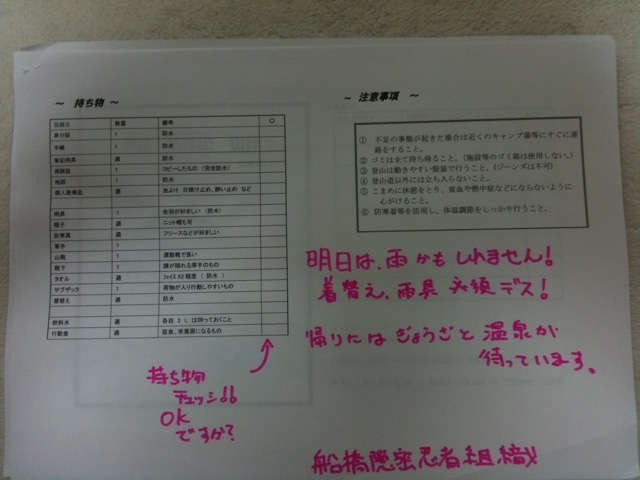 ～ 持ち物 ～
品物名 数量 備考 ○
身分証 1 防水
手帳 1 防水
筆記用具 適 防水
保険証 1 コピーしたもの（完全防水）
地図 1 防水
個人医療品 適 虫よけ 日焼け止め、酔い止め など
雨具 1 合羽が好ましい（防水）
帽子 適 ニット帽も可
防寒具 適 フリースなどが好ましい
軍手 1
山靴 1 運動靴で良い
靴下 1 踝が隠れる厚手のもの
タオル 適 フェイス×2程度（防水）
サブザック 1 荷物が入り行動しやすいもの
着替え 適 防水
飲料水 適 各自 2L は持っておくこと
行動食 適 昼食、栄養源になるもの
～ 注意事項 ～
① 不足の事態が起きた場合は近くのキャンプ場等にすぐに連
絡をすること。
② ゴミは全て持ち帰ること。（施設等のゴミ箱は使用しない。）
③ 登山は動きやすい服装で行うこと。（ジーンズは不可）
④ 登山道以外には立ち入らないこと。
⑤ こまめに休憩をとり、貧血や熱中症などにならないように
心がけること。
⑥ 防寒着等を活用し、体温調節をしっかり行うこと。
明日は、雨かもしれません!
着替え、雨具 必須デス!
帰りには ぎょうざと 温泉が
待っています。
持ち物
チェッシ!!
OK
ですか?
船橋隠密忍者組織